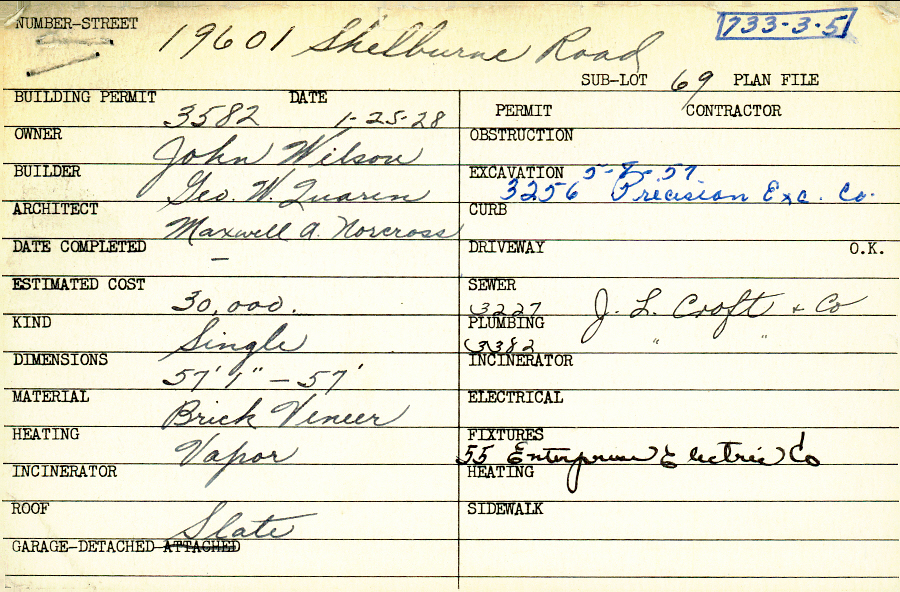 NUMBER-STREET 19601 Shelburne Road 733-3-5
SUB-LOT 69 PLAN FILE
BUILDING PERMIT 3582 DATE 1-25-28
PERMIT CONTRACTOR
OWNER John Wilson
OBSTRUCTION
BUILDER Geo. W. Quarin
EXCAVATION 5-8-57
3256 Precision Exc. Co.
ARCHITECT Maxwell A. Norcross
CURB
DATE COMPLETED –
DRIVEWAY O.K.
ESTIMATED COST 30,000.
SEWER 3227 J. L. Croft & Co
KIND Single
PLUMBING 3382 " "
DIMENSIONS 57' 1" – 57'
INCINERATOR
MATERIAL Brick Veneer
ELECTRICAL
HEATING Vapor
FIXTURES
55 Enterprise Electric Co
INCINERATOR
HEATING
ROOF Slate
SIDEWALK
GARAGE-DETACHED ATTACHED